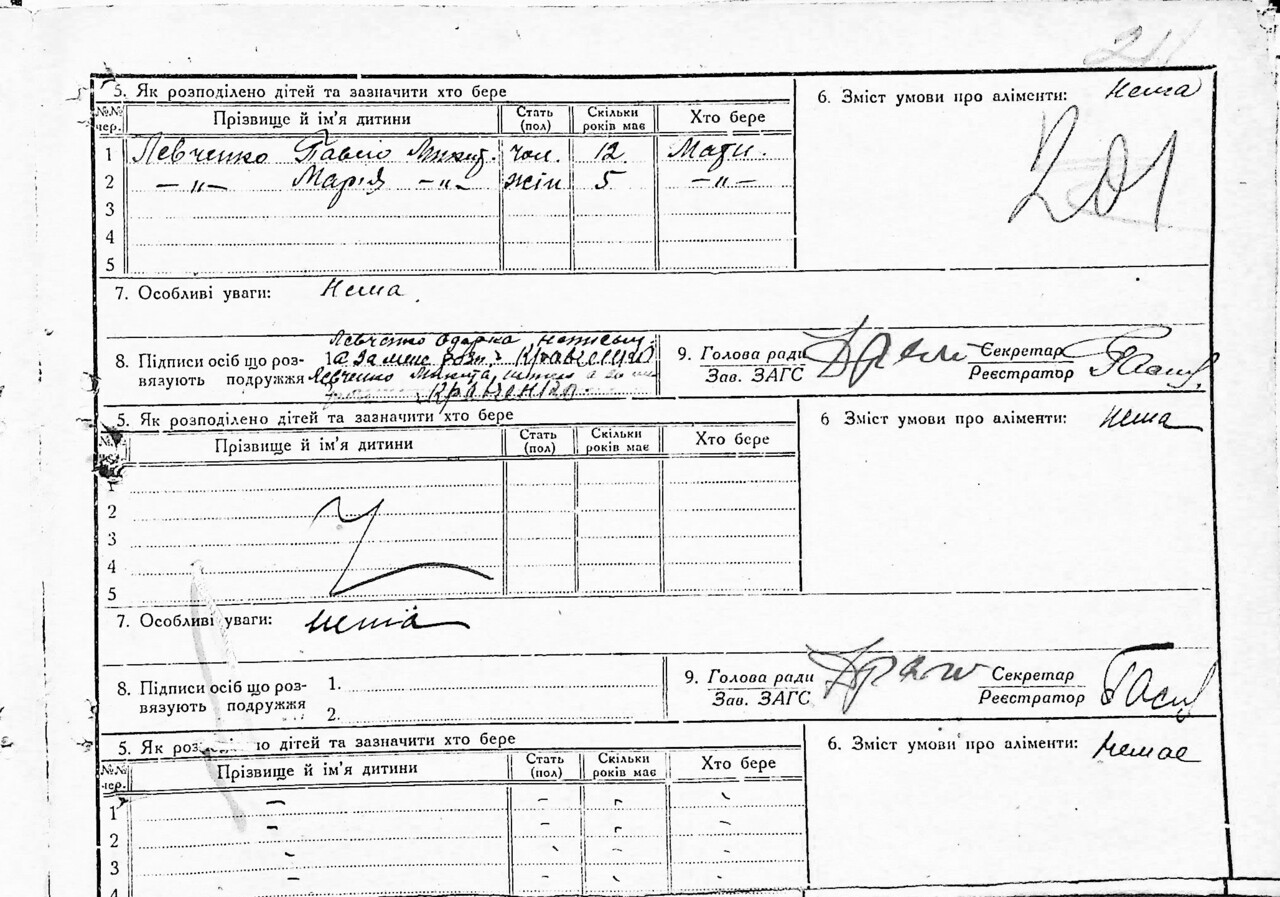 211
5. Як розподілено дітей та зазначити хто бере
6. Зміст умови про аліменти: нема
№№ чер. Прізвище й ім'я дитини Стать (пол) Скільки років має Хто бере
201
1 Левченко Павло Микит. чол. 12 Мати.
2 —„— Марія —„— жін 5 —„—
3
4
5
7. Особливі уваги: Нема.
8. Підписи осіб що роз-
вязують подружжя
1. Левченко Одарка, неписьм.
а за мене розп. Кравченко
Левченко Микита,
Кравченко.
9. Голова ради
Зав. ЗАГС
Секретар
Реєстратор
5. Як розподілено дітей та зазначити хто бере
6 Зміст умови про аліменти: нема
Прізвище й ім'я дитини Стать (пол) Скільки років має Хто бере
1
2
3
4
5
7. Особливі уваги: нема
8. Підписи осіб що роз-
вязують подружжя
1.
2.
9. Голова ради
Зав. ЗАГС
Секретар
Реєстратор
5. Як роз но дітей та зазначити хто бере
6. Зміст умови про аліменти: немає
№№ чер. Прізвище й ім'я дитини Стать (пол) Скільки років має Хто бере
1 – – – –
2 – – – –
3 – – – –
4